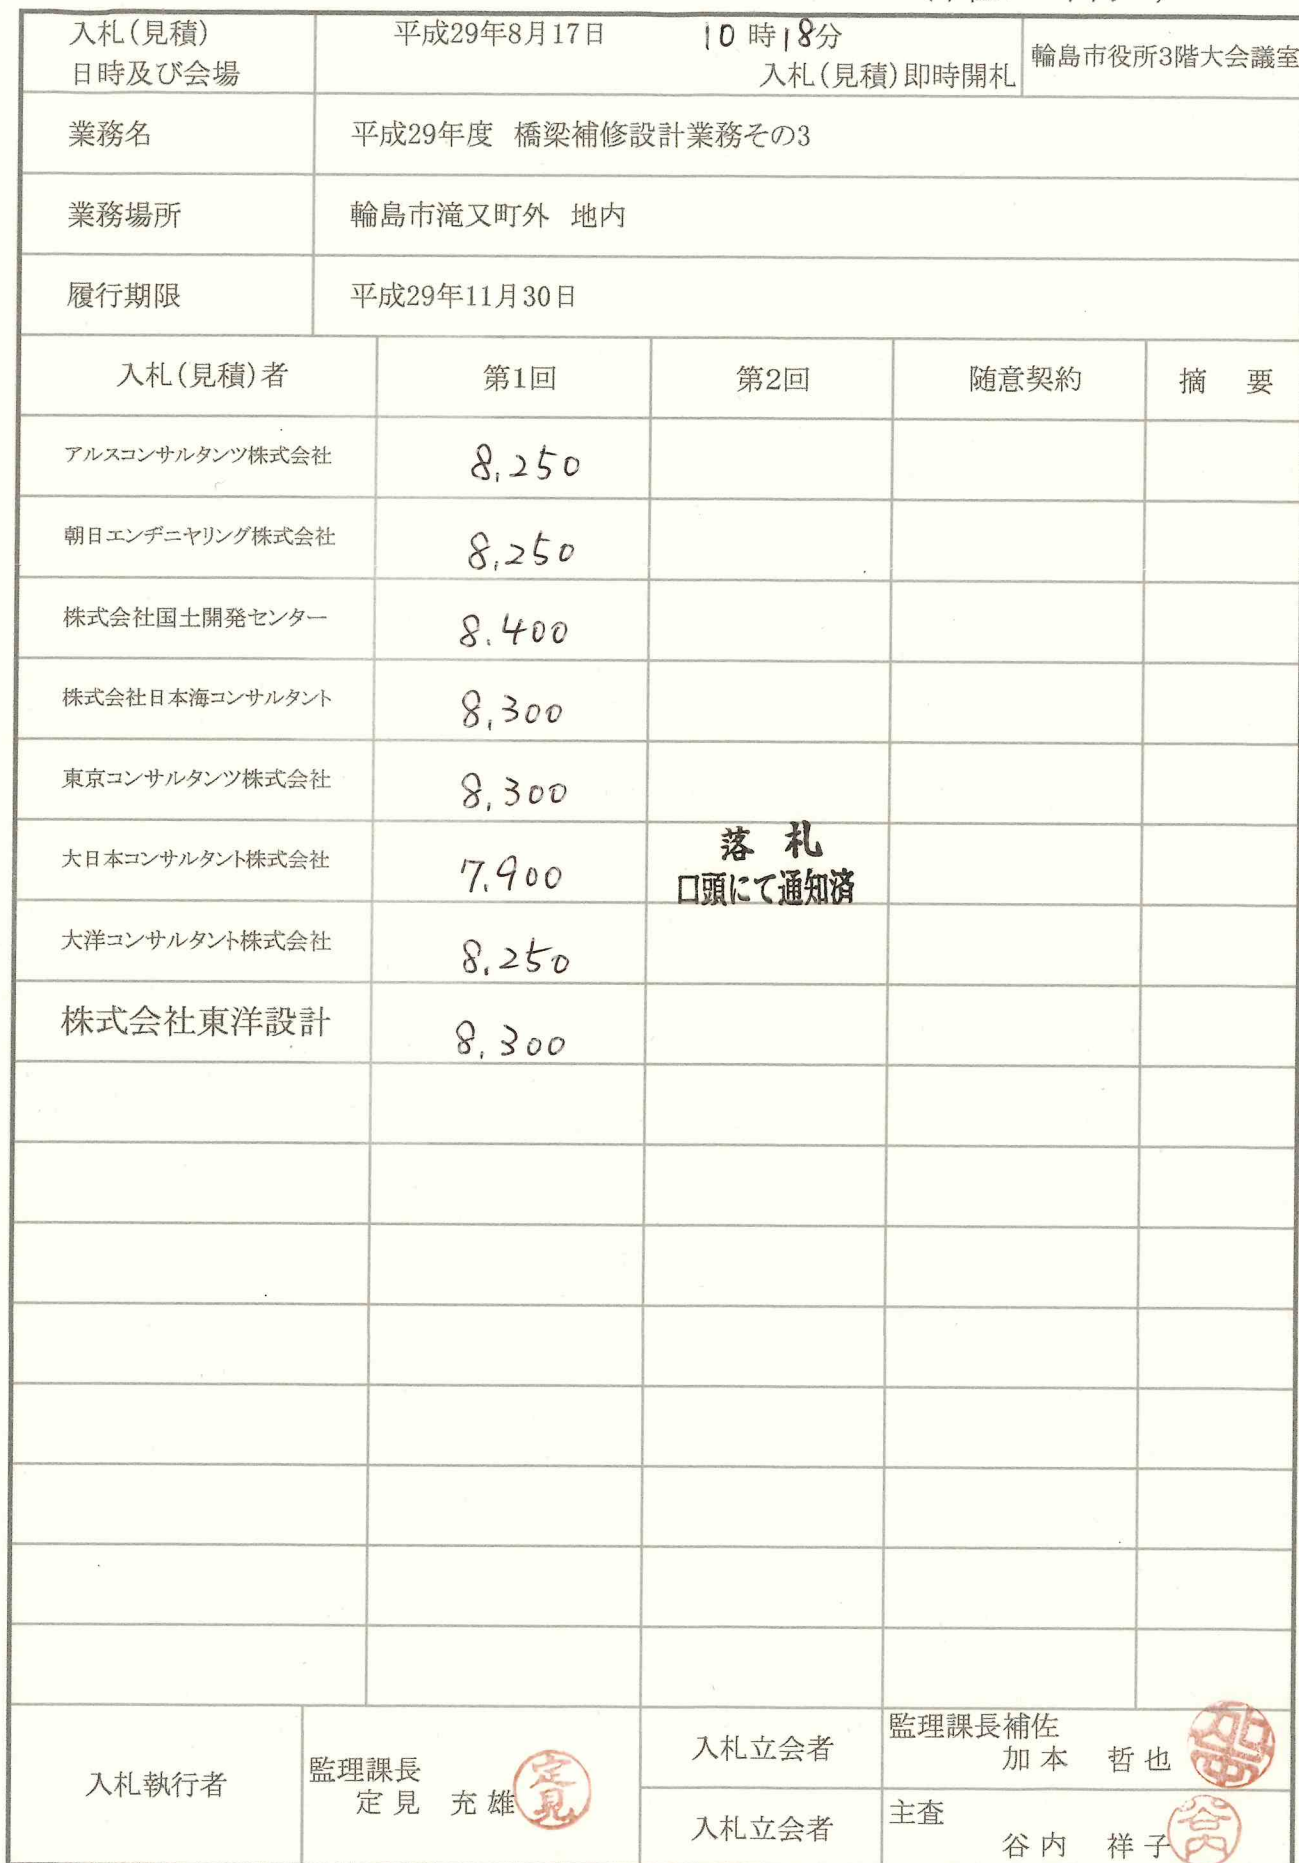 入札(見積)
日時及び会場
平成29年8月17日 10時18分
入札(見積)即時開札
輪島市役所3階大会議室
業務名 平成29年度 橋梁補修設計業務その3
業務場所 輪島市滝又町外 地内
履行期限 平成29年11月30日
入札(見積)者 第1回 第2回 随意契約 摘 要
アルスコンサルタンツ株式会社 8,250
朝日エンヂニヤリング株式会社 8,250
株式会社国土開発センター 8.400
株式会社日本海コンサルタント 8,300
東京コンサルタンツ株式会社 8,300
大日本コンサルタント株式会社 7,900 落 札
口頭にて通知済
大洋コンサルタント株式会社 8,250
株式会社東洋設計 8,300
入札執行者
監理課長
定見 充雄
定見
入札立会者
監理課長補佐
加本 哲也
入札立会者
主査
谷内 祥子
谷内